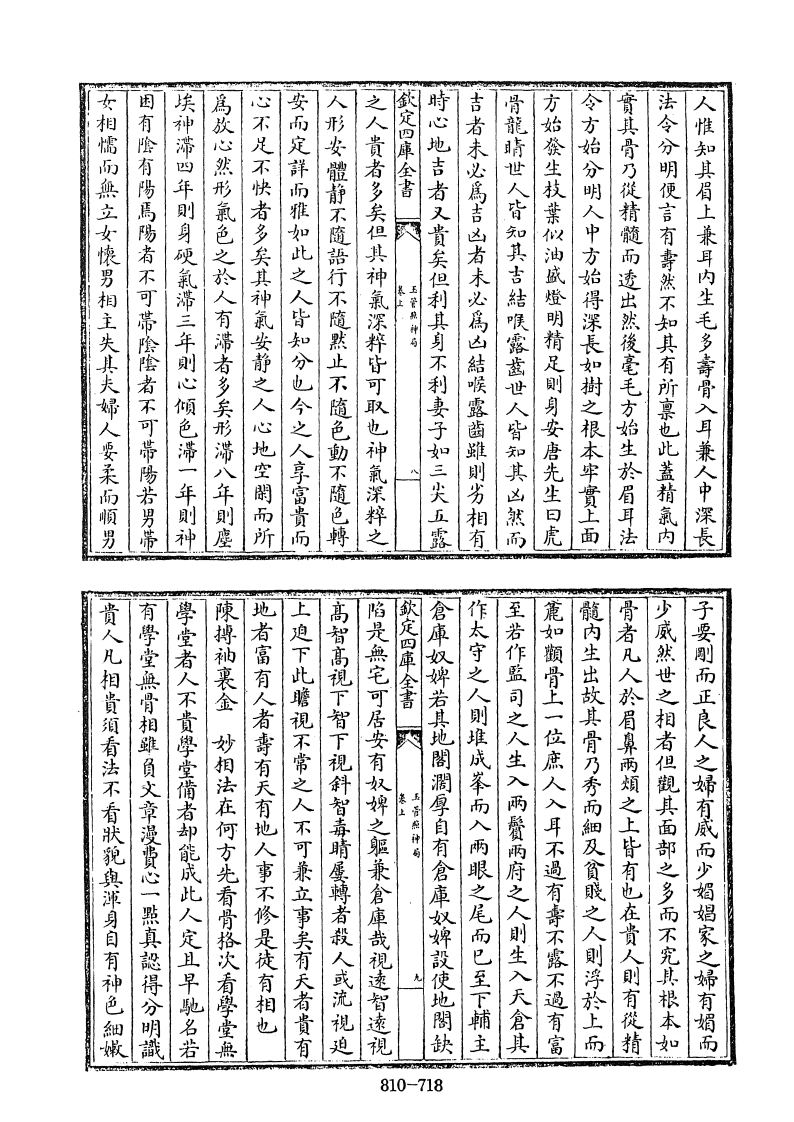 人惟知其眉上兼耳内生毛多壽骨入耳兼人中深長
法令分明便言有壽然不知其有所禀也此蓋精氣内
實其骨乃從精髓而透出然後毫毛方始生於眉耳法
令方始分明人中方始得深長如樹之根本牢實上面
方始發生枝葉似油盛燈明精足則身安唐先生曰虎
骨龍睛世人皆知其吉結喉露齒世人皆知其凶然而
吉者未必爲吉凶者未必爲凶結喉露齒雖則劣相有
時心地吉者又貴矣但利其身不利妻子如三尖五露
欽定四庫全書
玉管照神局
卷上
八
之人貴者多矣但其神氣深粹皆可取也神氣深粹之
人形安體静不隨語行不隨黙止不隨色動不隨色轉
安而定詳而雅如此之人皆知分也今之人享富貴而
心不足不快者多矣其神氣安静之人心地空闊而所
爲放心然形氣色之於人有滯者多矣形滯八年則塵
埃神滯四年則身硬氣滯三年則心傾色滯一年則神
困有陰有陽焉陽者不可帶陰陰者不可帶陽若男帶
女相懦而無立女懷男相主失其夫婦人要柔而順男
子要剛而正良人之婦有威而少媚娼家之婦有媚而
少威然世之相者但觀其面部之多而不究其根本如
骨者凡人於眉鼻兩頰之上皆有也在貴人則有從精
髓内生出故其骨乃秀而細及貧賤之人則浮於上而
麄如顴骨上一位庶人入耳不過有壽不露不過有富
至若作監司之人生入兩鬢兩府之人則生入天倉其
作太守之人則堆成峯而入兩眼之尾而已至下輔主
倉庫奴婢若其地閣濶厚自有倉庫奴婢設使地閣缺
欽定四庫全書
玉管照神局
卷上
九
陷是無宅可居安有奴婢之軀兼倉庫哉視逺智逺視
髙智髙視下智下視斜智毒睛屢轉者殺人或流視迫
上迫下此瞻視不常之人不可兼立事矣有天者貴有
地者富有人者壽有天有地人事不修是徒有相也
陳摶袖裏金　妙相法在何方先看骨格次看學堂無
學堂者人不貴學堂備者却能成此人定且早馳名若
有學堂無骨相雖負文章漫費心一點真認得分明識
貴人凡相貴須看法不看狀貌與渾身自有神色細嫩
810-718